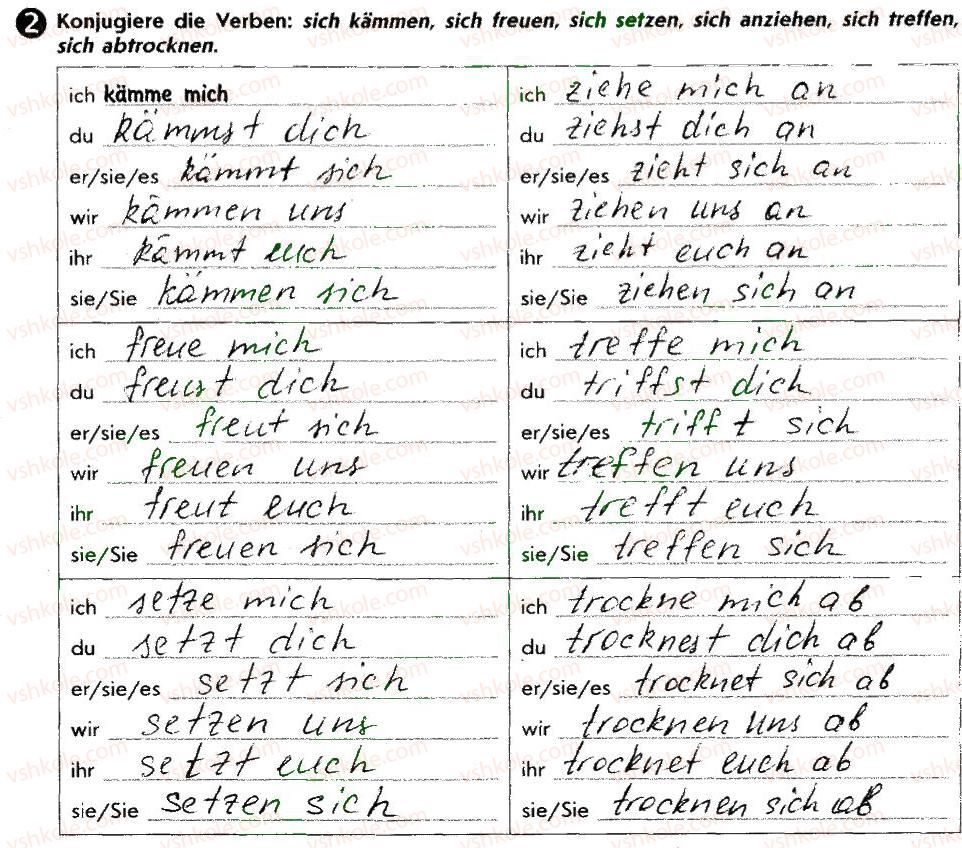 2 Konjugiere die Verben: sich kämmen, sich freuen, sich setzen, sich anziehen, sich treffen,
sich abtrocknen.
ich kämme mich
du kämmst dich
er/sie/es kämmt sich
wir kämmen uns
ihr kämmt euch
sie/Sie kämmen sich
ich ziehe mich an
du ziehst dich an
er/sie/es zieht sich an
wir ziehen uns an
ihr zieht euch an
sie/Sie ziehen sich an
ich freue mich
du freust dich
er/sie/es freut sich
wir freuen uns
ihr freut euch
sie/Sie freuen sich
ich treffe mich
du triffst dich
er/sie/es trifft sich
wir treffen uns
ihr trefft euch
sie/Sie treffen sich
ich setze mich
du setzt dich
er/sie/es setzt sich
wir setzen uns
ihr setzt euch
sie/Sie setzen sich
ich trockne mich ab
du trocknest dich ab
er/sie/es trocknet sich ab
wir trocknen uns ab
ihr trocknet euch ab
sie/Sie trocknen sich ab
vshkole.com